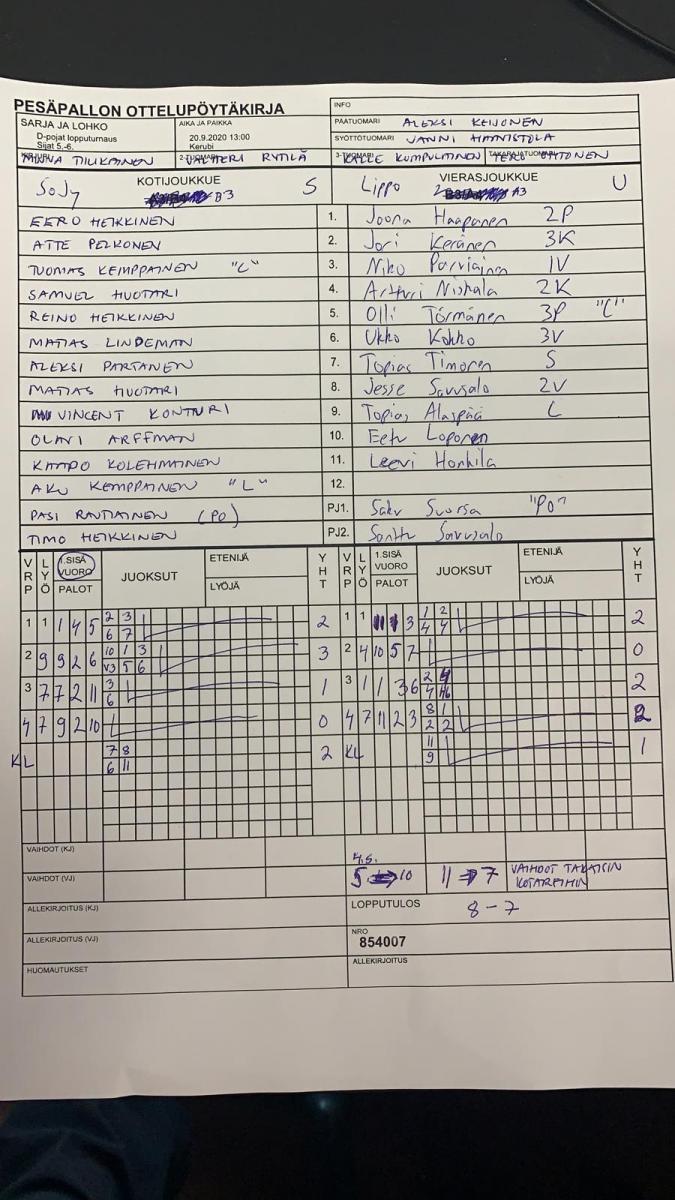 PESÄPALLON OTTELUPÖYTÄKIRJA
INFO
SARJA JA LOHKO
D-pojat lopputurnaus
Sijat 5.-6.
AIKA JA PAIKKA
20.9.2020 13:00
Kerubi
PÄÄTUOMARI ALEKSI KEIJONEN
SYÖTTÖTUOMARI VANNI HANNISTOLA
MINNA TILIKAINEN
VALTTERI RYTILÄ
3-TUOMARI KALLE KUMPULAINEN
TAKARAJATUOMARI TERO
SoJy KOTIJOUKKUE B3 S
Lippo VIERASJOUKKUE A3 U
EERO HEIKKINEN 1. Joona Haapanen 2P
ATTE PELKONEN 2. Jori Keränen 3K
TUOMAS KEMPPAINEN "C" 3. Niko Parviainen 1V
SAMUEL HUOTARI 4. Artturi Niskala 2K
REINO HEIKKINEN 5. Olli Törmänen 3P "C"
MATIAS LINDEMAN 6. Ukko Kokko 3V
ALEKSI PARTANEN 7. Topias Timonen S
MATIAS HUOTARI 8. Jesse Savusalo 2V
VINCENT KONTTURI 9. Topias Alaspää L
OLAVI ARFFMAN 10. Eetu Loponen
KAAPO KOLEHMAINEN 11. Leevi Honkila
AKU KEMPPAINEN "L" 12.
PASI RAUTIAINEN (PO) PJ1. Saku Suorsa "PO"
TIMO HEIKKINEN PJ2. Santtu Savusalo
VRP LYÖ 1.SISÄ VUORO PALOT JUOKSUT ETENIJÄ LYÖJÄ YHT VRP LYÖ 1.SISÄ VUORO PALOT JUOKSUT ETENIJÄ LYÖJÄ YHT
1 1 1 4 5 2 3 2 1 1 3 1 2 2
6 7 4 4
2 9 9 2 6 10 1 3 3 2 4 10 5 7 0
V3 5 6
3 7 7 2 11 3 1 3 1 1 3 6 2 4 2
6 4
4 7 9 2 10 0 4 7 11 2 3 8 1 2
2 2
KL 7 8 2 KL 11 1
6 11 9
VAIHDOT (KJ)
4.s.
VAIHDOT (VJ) 5 10 11 → 7 VAIHDOT TAKAISIN
KOTIPESIIN
ALLEKIRJOITUS (KJ) LOPPUTULOS 8-7
ALLEKIRJOITUS (VJ) NRO
854007
HUOMAUTUKSET ALLEKIRJOITUS